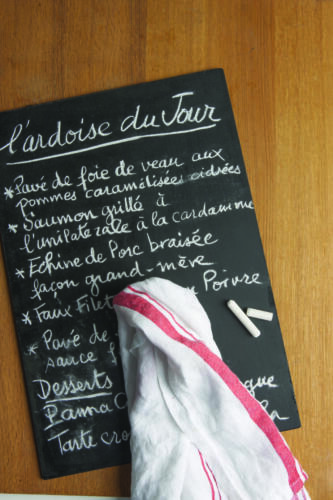 l'ardoise du Jour
*Pavé de foie de veau aux
pommes caramélisées cidrées
*Saumon grillé à
à la cardamome
*Echine de Porc braisée
façon grand-mère
*Faux Filet Poivre
*Pavé de
sauce
Desserts
Panna
Tarte